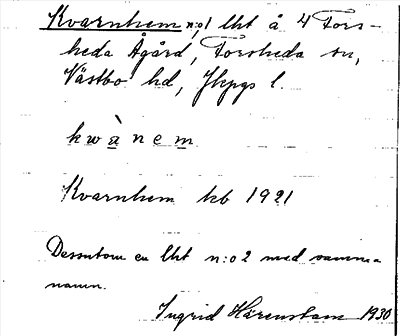 Kvarnhem n:o1 lht å 4 Fors-
heda Ågård, Forsheda sn,
Västbo hd, Jkpgs l.
kwànem
Kvarnhem kb 1921
Dessutom en lht n:o 2 med samma
namn.
Ingrid Härenstam 1930